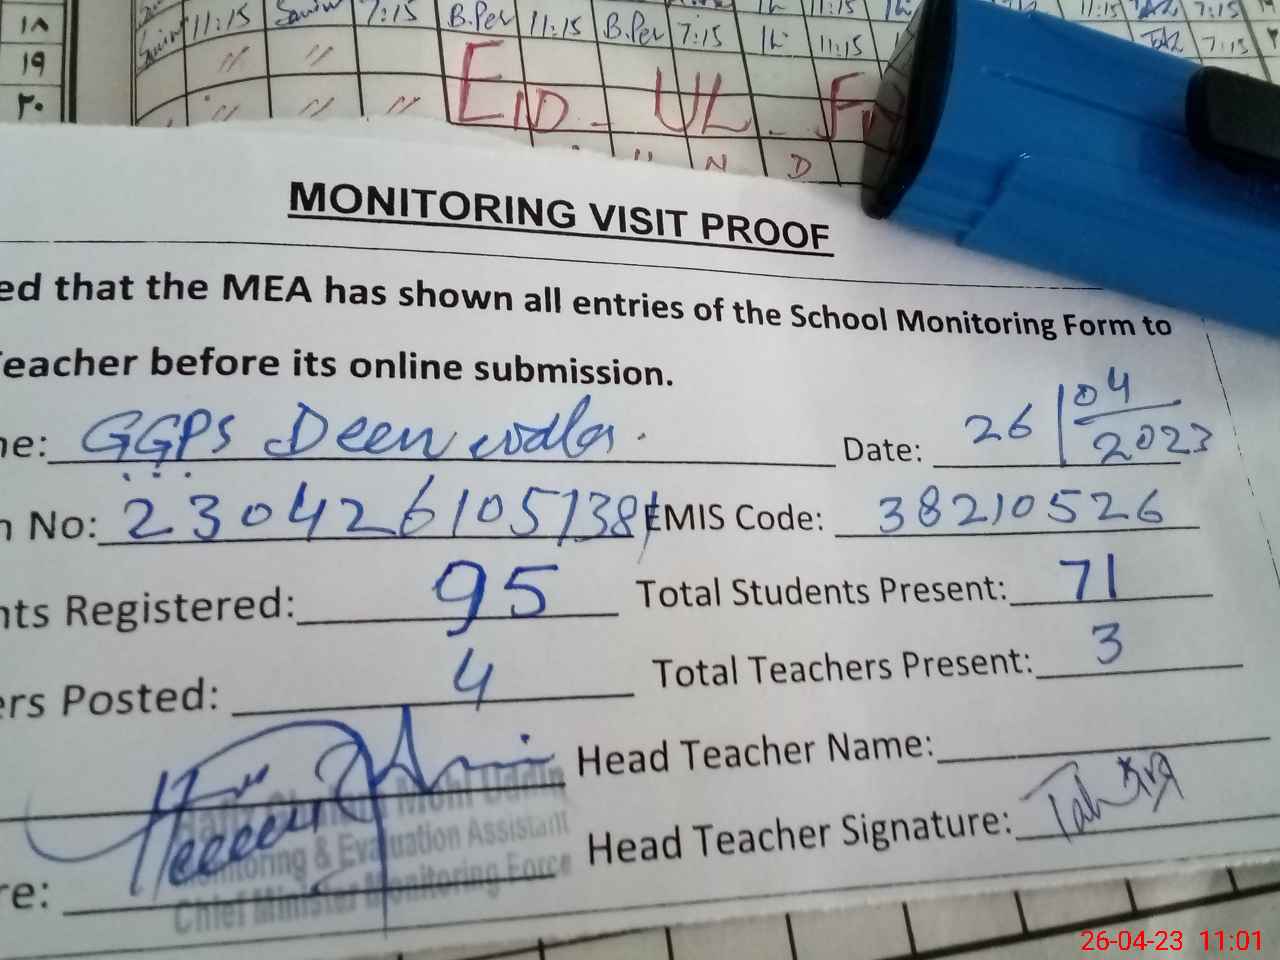 ۱۸ 11:15 7:15 B.Per 11:15 B.Per 7:15 11:15 11:15 7:15
۱۹ " "
۲۰ " " " EID - UL - F
" N D
MONITORING VISIT PROOF
ed that the MEA has shown all entries of the School Monitoring Form to
eacher before its online submission.
ne: GGPS Deen wala. Date: 26/04/2023
n No: 230426105138 EMIS Code: 38210526
nts Registered: 95 Total Students Present: 71
ers Posted: 4 Total Teachers Present: 3
Head Teacher Name:
Mohi Uddin
Monitoring & Evaluation Assistant
Head Teacher Signature:
re:
Chief Minister Monitoring Force
26-04-23 11:01